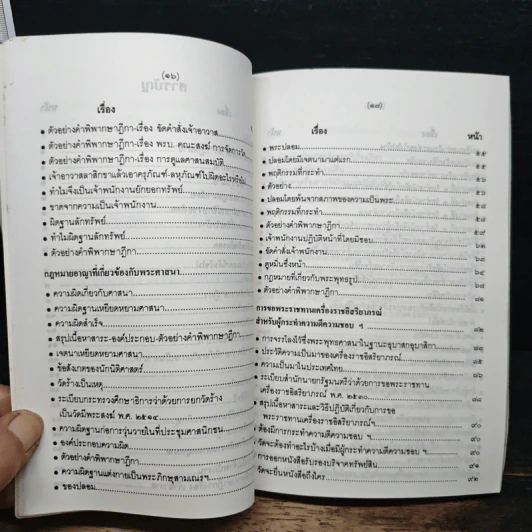 (๑๖)
เรื่อง
• ตัวอย่างคำพิพากษาฎีกา-เรื่อง ขัดคำสั่งเจ้าอาวาส
• ตัวอย่างคำพิพากษาฎีกา-เรื่อง พรบ. คณะสงฆ์ การจัดการวัด
• ตัวอย่างคำพิพากษาฎีกา-เรื่อง การดูแลศาสนสมบัติ
• เจ้าอาวาสลาสิกขาแล้วเอาครุภัณฑ์-ลหุภัณฑ์ไปผิดอะไรหรือไม่
• ทำไมจึงเป็นเจ้าพนักงานยักยอกทรัพย์
• ขาดจากความเป็นเจ้าพนักงาน
• ผิดฐานลักทรัพย์
• ทำไมผิดฐานลักทรัพย์
• ตัวอย่างคำพิพากษาฎีกา
กฎหมายอาญาที่เกี่ยวข้องกับพระศาสนา
• ความผิดเกี่ยวกับศาสนา
• ความผิดฐานเหยียดหยามศาสนา
• ความผิดสำเร็จ
• สรุปเนื้อหาสาระ-องค์ประกอบ-ตัวอย่างคำพิพากษาฎีกา
• เจตนาเหยียดหยามศาสนา
• ข้อสังเกตของนักนิติศาสตร์
• วัดร้างเป็นเหตุ
• ระเบียบกระทรวงศึกษาธิการว่าด้วยการยกวัดร้าง
เป็นวัดมีพระสงฆ์ พ.ศ. ๒๕๑๔
• ความผิดฐานก่อการวุ่นวายในที่ประชุมศาสนิกชน
• องค์ประกอบความผิด
• ตัวอย่างคำพิพากษาฎีกา
• ความผิดฐานแต่งกายเป็นพระภิกษุสามเณรฯ
• ของปลอม
(๑๗)
เรื่อง หน้า
• พระปลอม
• ปลอมโดยมีเจตนามาแต่แรก
• พฤติกรรมที่กระทำ
• ตัวอย่าง
• ปลอมโดยพ้นจากสภาพของความเป็นพระ
• พฤติกรรมที่กระทำ
• ตัวอย่างคำพิพากษาฎีกา
• เจ้าพนักงานปฏิบัติหน้าที่โดยมิชอบ
• ขัดคำสั่งเจ้าพนักงาน
• ดูหมิ่นซึ่งหน้า
• กฎหมายที่เกี่ยวกับพระพุทธรูป
• ตัวอย่างคำพิพากษาฎีกา
การขอพระราชทานเครื่องราชอิสริยาภรณ์
สำหรับผู้กระทำความดีความชอบ ฯ
• การจรรโลงไว้ซึ่งพระพุทธศาสนาในฐานะอุบาสกอุบาสิกา
• ประวัติความเป็นมาของเครื่องราชอิสริยาภรณ์
• ความเป็นมาในประเทศไทย
• ระเบียบสำนักนายกรัฐมนตรีว่าด้วยการขอพระราชทาน
เครื่องราชอิสริยาภรณ์ พ.ศ. ๒๕๓๐
• สรุปเนื้อหาสาระและวิธีปฏิบัติเกี่ยวกับการขอ
พระราชทานเครื่องราชอิสริยาภรณ์ฯ ๙๐
• ต้องมีการกระทำความดีความชอบ ฯ ๙๐
• วัดจะต้องทำอะไรบ้างเมื่อมีผู้กระทำความดีความชอบ ฯ ๙๐
• การออกหนังสือรับรองบริจาคทรัพย์สิน ๙๑
• วัดจะยื่นหนังสือถึงใคร ๙๒